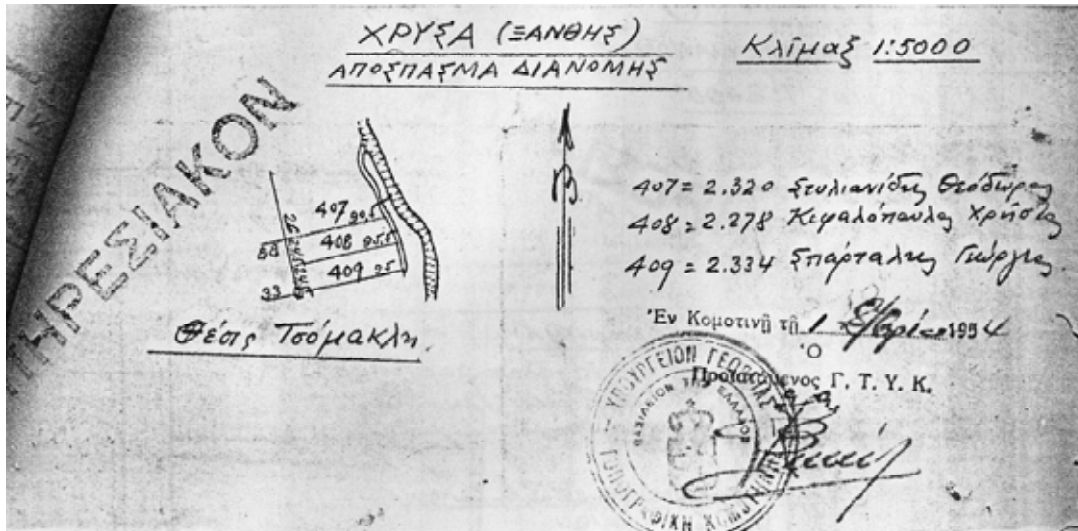 ΧΡΥΣΑ (ΞΑΝΘΗΣ)
ΑΠΟΣΠΑΣΜΑ ΔΙΑΝΟΜΗΣ
Κλίμαξ 1:5000
ΗΡΕΣΙΑΚΟΝ
407
408
409 95
33
Θέσις Τσόμακλη.
407 = 2.320 Στυλιανίδης Θεόδωρος
408 = 2.278 Κεφαλόπουλος Χρήστος
409 = 2.334 Σπάρταλης Γεώργιος
Ἐν Κομοτινῇ τῇ 1 1954
Ὁ
Προϊστάμενος Γ. Τ. Υ. Κ.
ΥΠΟΥΡΓΕΙΟΝ ΓΕΩΡΓΙΑΣ
ΒΑΣΙΛΕΙΟΝ ΤΗΣ ΕΛΛΑΔΟΣ
ΤΟΠΟΓΡΑΦΙΚΗ ΚΟΜΟΤΙΝΗΣ